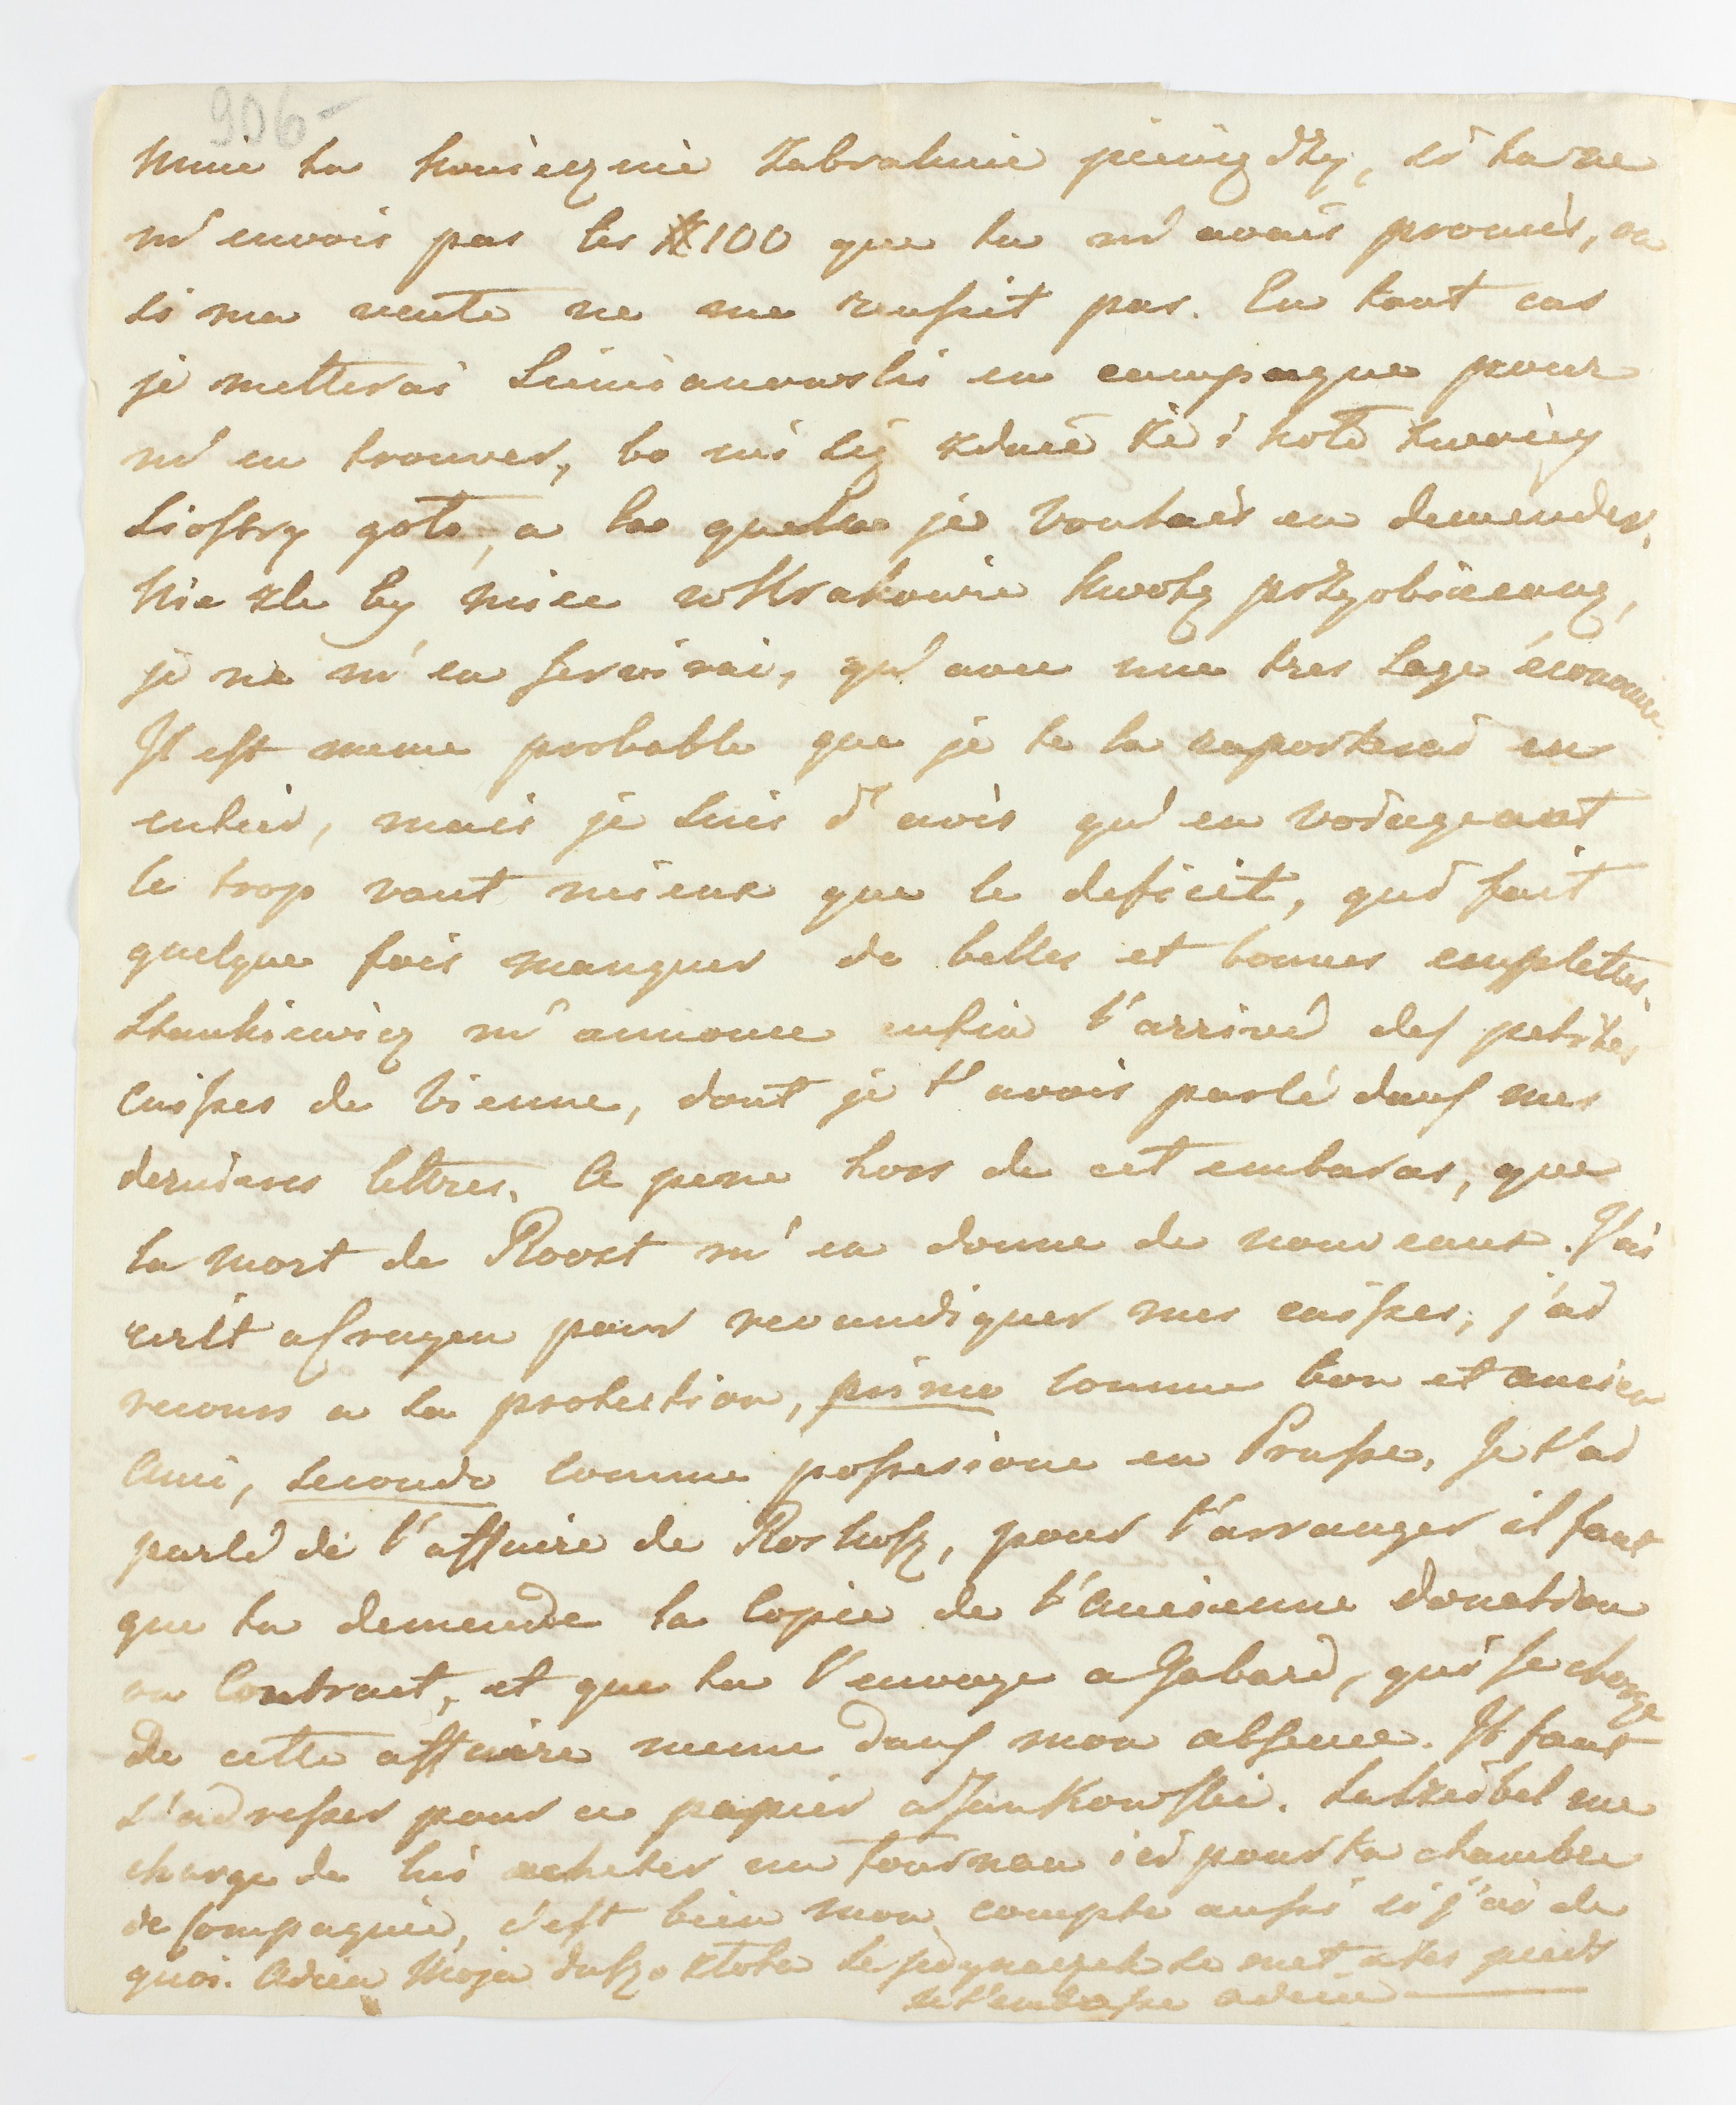 906-
mnie to koniecznie zabraknie pieniędzy, si tu ne
m'envois pas les # 100 que tu m'avais promis, ou
si ma vente ne me reussit pas. En tout cas
je metterai Siemianowski en campagne pour
m'en trouver, bo mi się zdaie że i koło twoiey
Siostry goło, a la quelle je voulais en demender.
Nie zle by miec w Krakowie kwotę przyobiecaną,
je ne m'en servirai, qu'avec une tres sage économie.
Il est meme probable que je te la raporterai en
entier, mais je suis d'avis qu'en voiageant
le trop vaut mieux que le deficit, qui fait
quelque fois manquer de belles et bonnes emplettes.
Stankiewicz m'annonce enfin l'arrivé des petites
caisses de Vienne, dont je t'avois parlé dans mes
dernieres lettres. A pene hors de cet embaras, que
la mort de Roost m'en donne de nouveaux. J'ai
ecrit a pour revandiquer mes caisses, j'ai
recours a ta protection, primo comme bon et ancien
Ami, secundo comme possesione en Prusse. Je t'ai
parlé de l'affaire de Roskosz, pour l'arranger il faut
que tu demende la copie de l'ancienne donation
ou Contract, et que tu l'envoye a Gabard, qui se charge
de cette affaire meme dans mon absence. Il faut
s'adresser pour ce papier a Jankowski. me
charge de lui acheter un fourneau ici pour ta chambre
de Compagnie, c'est bien mon compte aussi si j'ai de
quoi. Adieu Moja duszo złota le se met a tes pieds
et t'embrasse adieu